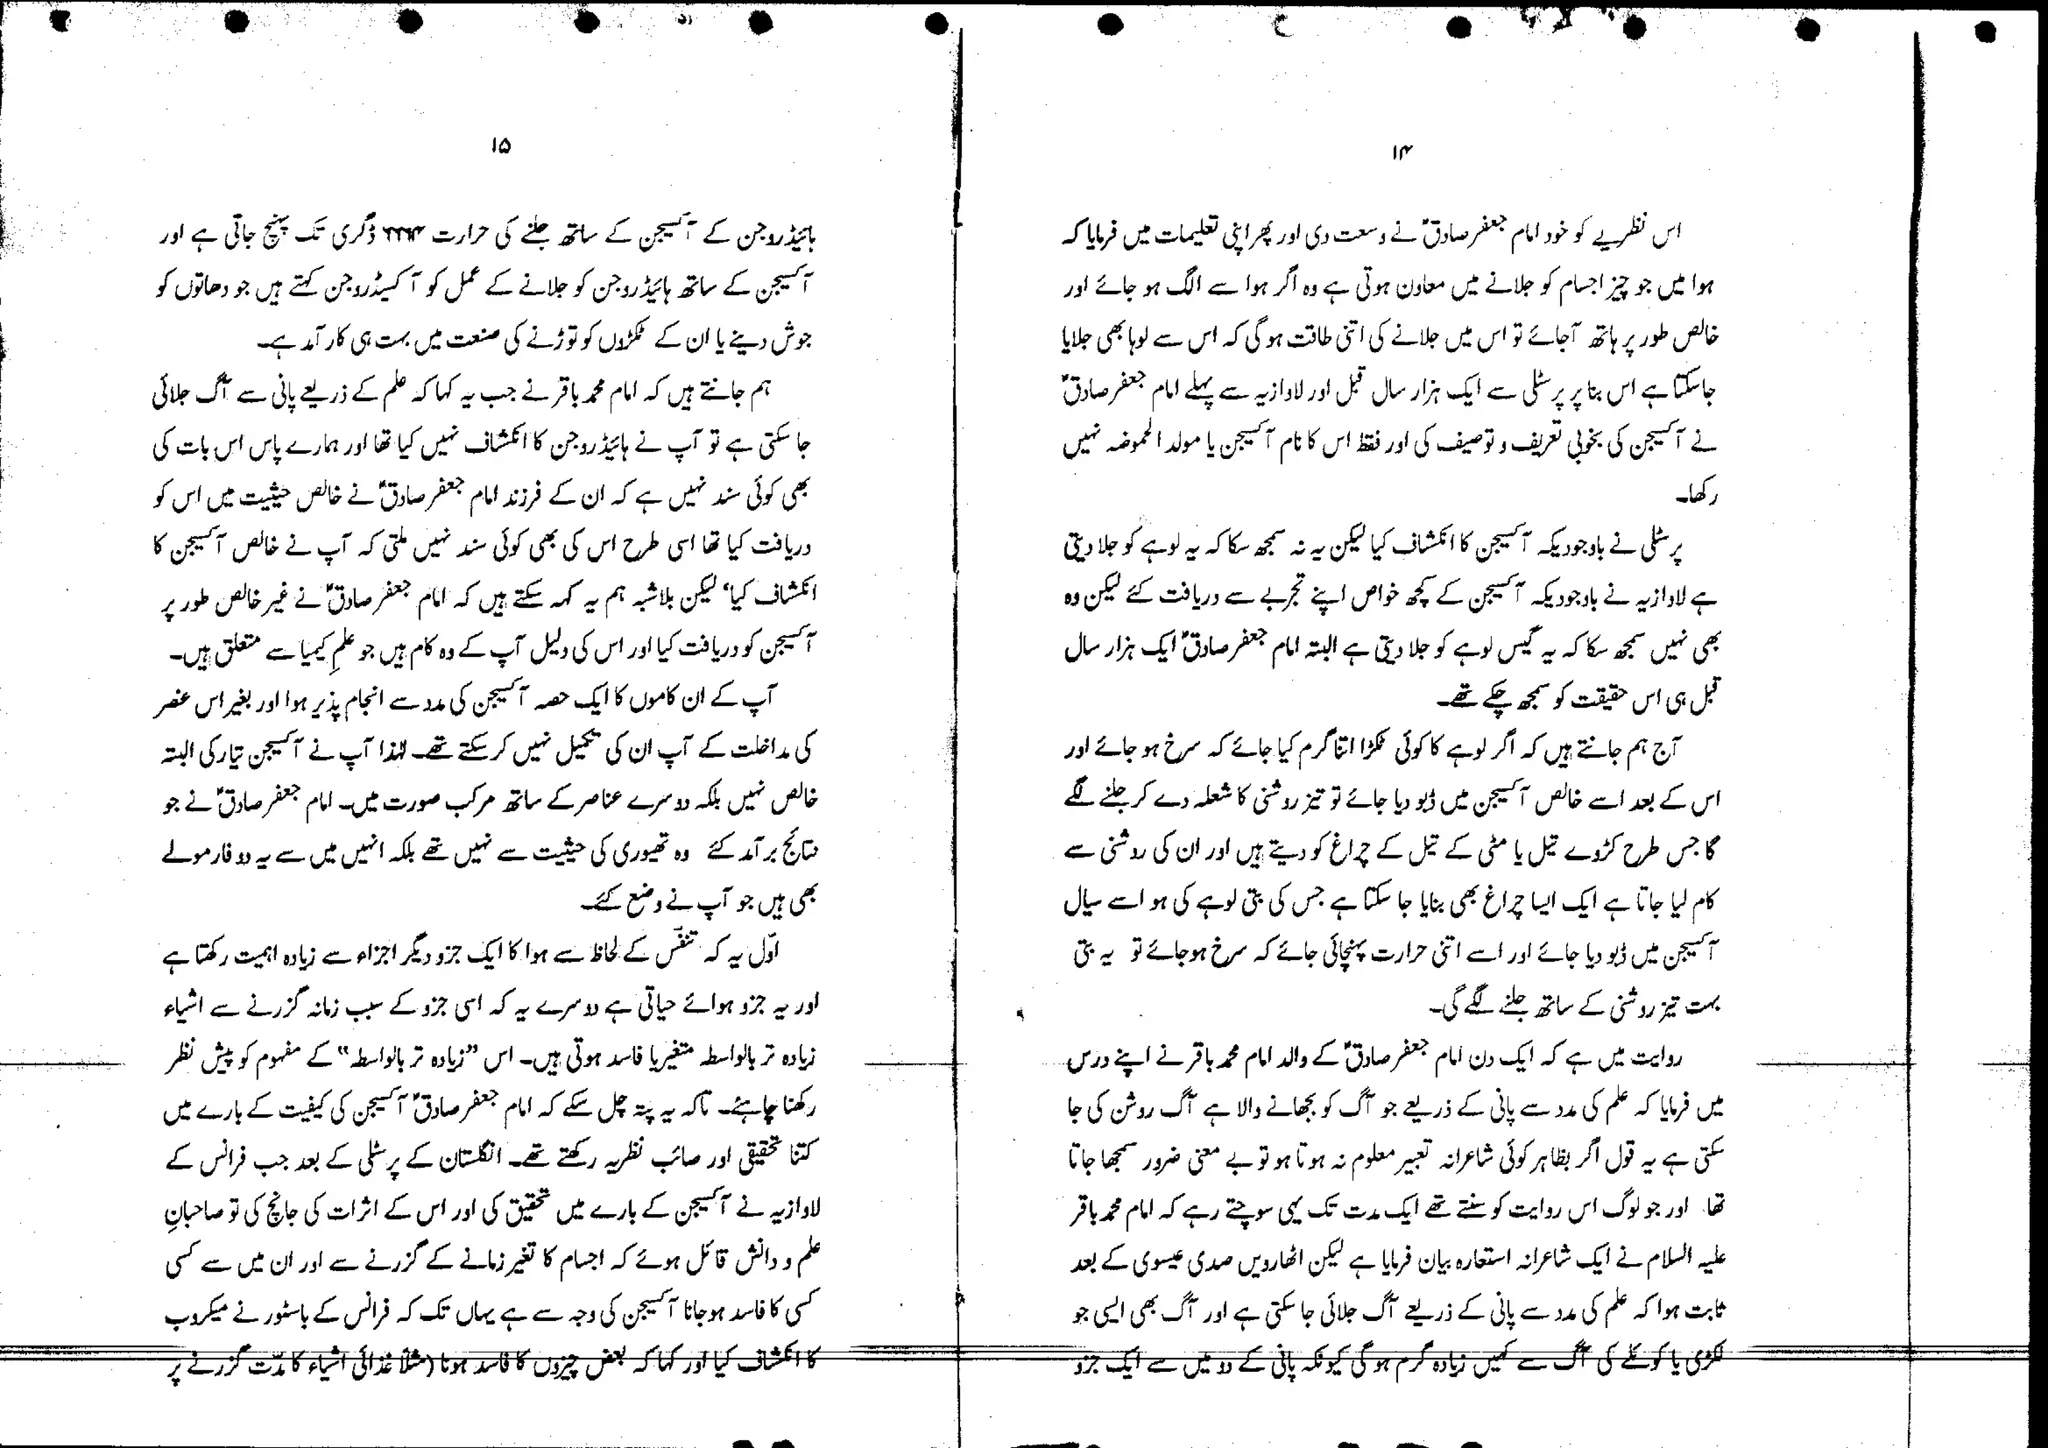 ۱۴
اس نظریے کو خود امام جعفر صادقؑ نے وسعت دی اور پھر اپنی تعلیمات میں فرمایا کہ
ہوا میں جو چیز اجسام کو جلانے میں معاون ہوتی ہے وہ اگر ہوا سے الگ ہو جائے اور
خالص طور پر ہاتھ آجائے تو اس میں جلانے کی اتنی طاقت ہوگی کہ اس سے لوہا بھی جلایا
جاسکتا ہے اس بنا پر پرسٹلی سے ایک ہزار سال قبل اور لاوازیہ سے پہلے امام جعفر صادقؑ
نے آکسیجن کی بخوبی تعریف و توصیف کی اور فقط اس کا نام آکسیجن یا مولد الحموضہ نہیں
رکھا۔
پرسٹلی نے باوجودیکہ آکسیجن کا انکشاف کیا لیکن یہ نہ سمجھ سکا کہ یہ لوہے کو جلا دیتی
ہے لاوازیہ نے باوجودیکہ آکسیجن کے کچھ خواص اپنے تجربے سے دریافت کئے لیکن وہ
بھی نہیں سمجھ سکا کہ یہ گیس لوہے کو جلا دیتی ہے البتہ امام جعفر صادقؑ ایک ہزار سال
قبل ہی اس حقیقت کو سمجھ چکے تھے۔
آج ہم جانتے ہیں کہ اگر لوہے کا کوئی ٹکڑا اتنا گرم کیا جائے کہ سرخ ہو جائے اور
اس کے بعد اسے خالص آکسیجن میں ڈبو دیا جائے تو تیز روشنی کا شعلہ دے کر جلنے لگے
گا جس طرح کڑوے تیل یا مٹی کے تیل کے چراغ کو دیتے ہیں اور ان کی روشنی سے
کام لیا جاتا ہے ایک ایسا چراغ بھی بنایا جا سکتا ہے جس کی بتی لوہے کی ہو اسے سیال
آکسیجن میں ڈبو دیا جائے اور اسے اتنی حرارت پہنچائی جائے کہ سرخ ہوجائے تو یہ بتی
بہت تیز روشنی کے ساتھ جلنے لگے گی۔
روایت میں ہے کہ ایک دن امام جعفر صادقؑ کے والد امام محمد باقر نے اپنے درس
میں فرمایا کہ علم کی مدد سے پانی کے ذریعے جو آگ کو بجھانے والا ہے آگ روشن کی جا
سکتی ہے یہ قول اگر بظاہر کوئی شاعرانہ تعبیر معلوم نہ ہوتا ہو تو بے معنی ضرور سمجھا جاتا
تھا اور جو لوگ اس روایت کو سنتے تھے ایک مدت تک یہی سوچتے رہے کہ امام محمد باقر
علیہ السلام نے ایک شاعرانہ استعارہ بیان فرمایا ہے لیکن اٹھارویں صدی عیسوی کے بعد
ثابت ہوا کہ علم کی مدد سے پانی کے ذریعے آگ جلائی جاسکتی ہے اور آگ بھی ایسی جو
لکڑی یا کوئلے کی آگ سے کہیں زیادہ گرم ہوگی کیونکہ پانی کے دو میں سے ایک جزو
۱۵
ہائیڈروجن کے آکسیجن کے ساتھ جلنے کی حرارت ۶۶۶۴ ڈگری تک پہنچ جاتی ہے اور
آکسیجن کے ساتھ ہائیڈروجن کو جلانے کے عمل کو آکسیڈروجن کہتے ہیں جو دھاتوں کو
جوش دینے یا ان کے ٹکڑوں کو توڑنے کی صنعت میں بہت ہی کار آمد ہے۔
ہم جانتے ہیں کہ امام محمد باقر نے جب یہ کہا کہ علم کے ذریعے پانی سے آگ جلائی
جا سکتی ہے تو آپ نے ہائیڈروجن کا انکشاف نہیں کیا تھا اور ہمارے پاس اس بات کی
بھی کوئی سند نہیں ہے کہ ان کے فرزند امام جعفر صادقؑ نے خالص حیثیت میں اس کو
دریافت کیا تھا اسی طرح اس کی بھی کوئی سند نہیں ملتی کہ آپ نے خالص آکسیجن کا
انکشاف کیا‘ لیکن بلاشبہ ہم یہ کہہ سکتے ہیں کہ امام جعفر صادقؑ نے غیر خالص طور پر
آکسیجن کو دریافت کیا اور اس کی دلیل آپ کے وہ کام ہیں جو علمِ کیمیا سے متعلق ہیں۔
آپ کے ان کاموں کا ایک حصہ آکسیجن کی مدد سے انجام پذیر ہوا اور بغیر اس عنصر
کی مداخلت کے آپ ان کی تکمیل نہیں کرسکتے تھے۔ لہٰذا آپ نے آکسیجن تیار کی البتہ
خالص نہیں بلکہ دوسرے عناصر کے ساتھ مرکب صورت میں۔ امام جعفر صادقؑ نے جو
نتائج برآمد کئے وہ تھیوری کی حیثیت سے نہیں تھے بلکہ انہیں میں سے یہ دو فارمولے
بھی ہیں جو آپ نے وضع کئے۔
اوّل یہ کہ تنفّس کے لحاظ سے ہوا کا ایک جزو دیگر اجزاء سے زیادہ اہمیت رکھتا ہے
اور یہ جزو ہوائے حیاتی ہے دوسرے یہ کہ اسی جزو کے سبب زمانہ گزرنے سے اشیاء
زیادہ تر بالواسطہ متغیر یا فاسد ہوتی ہیں۔ اس ”زیادہ تر بالواسطہ“ کے مفہوم کو پیش نظر
رکھنا چاہئے۔ تاکہ یہ پتہ چل سکے کہ امام جعفر صادقؑ آکسیجن کی کیفیت کے بارے میں
کتنا تحقیقی اور صائب نظریہ رکھتے تھے۔ انگلستان کے پرسٹلی کے بعد جب فرانس کے
لاوازیہ نے آکسیجن کے بارے میں تحقیق کی اور اس کے اثرات کی جانچ کی تو صاحبانِ
علم و دانش قائل ہوئے کہ اجسام کا تغیر زمانے کے گزرنے سے اور ان میں سے کسی
کسی کا فاسد ہوجانا آکسیجن کی وجہ سے ہے یہاں تک کہ فرانس کے پاسٹور نے میکروب
کا انکشاف کیا اور کہا کہ بعض چیزوں کا فاسد ہونا (مثلاً غذائی اشیاء کا مدّت گزرنے پر